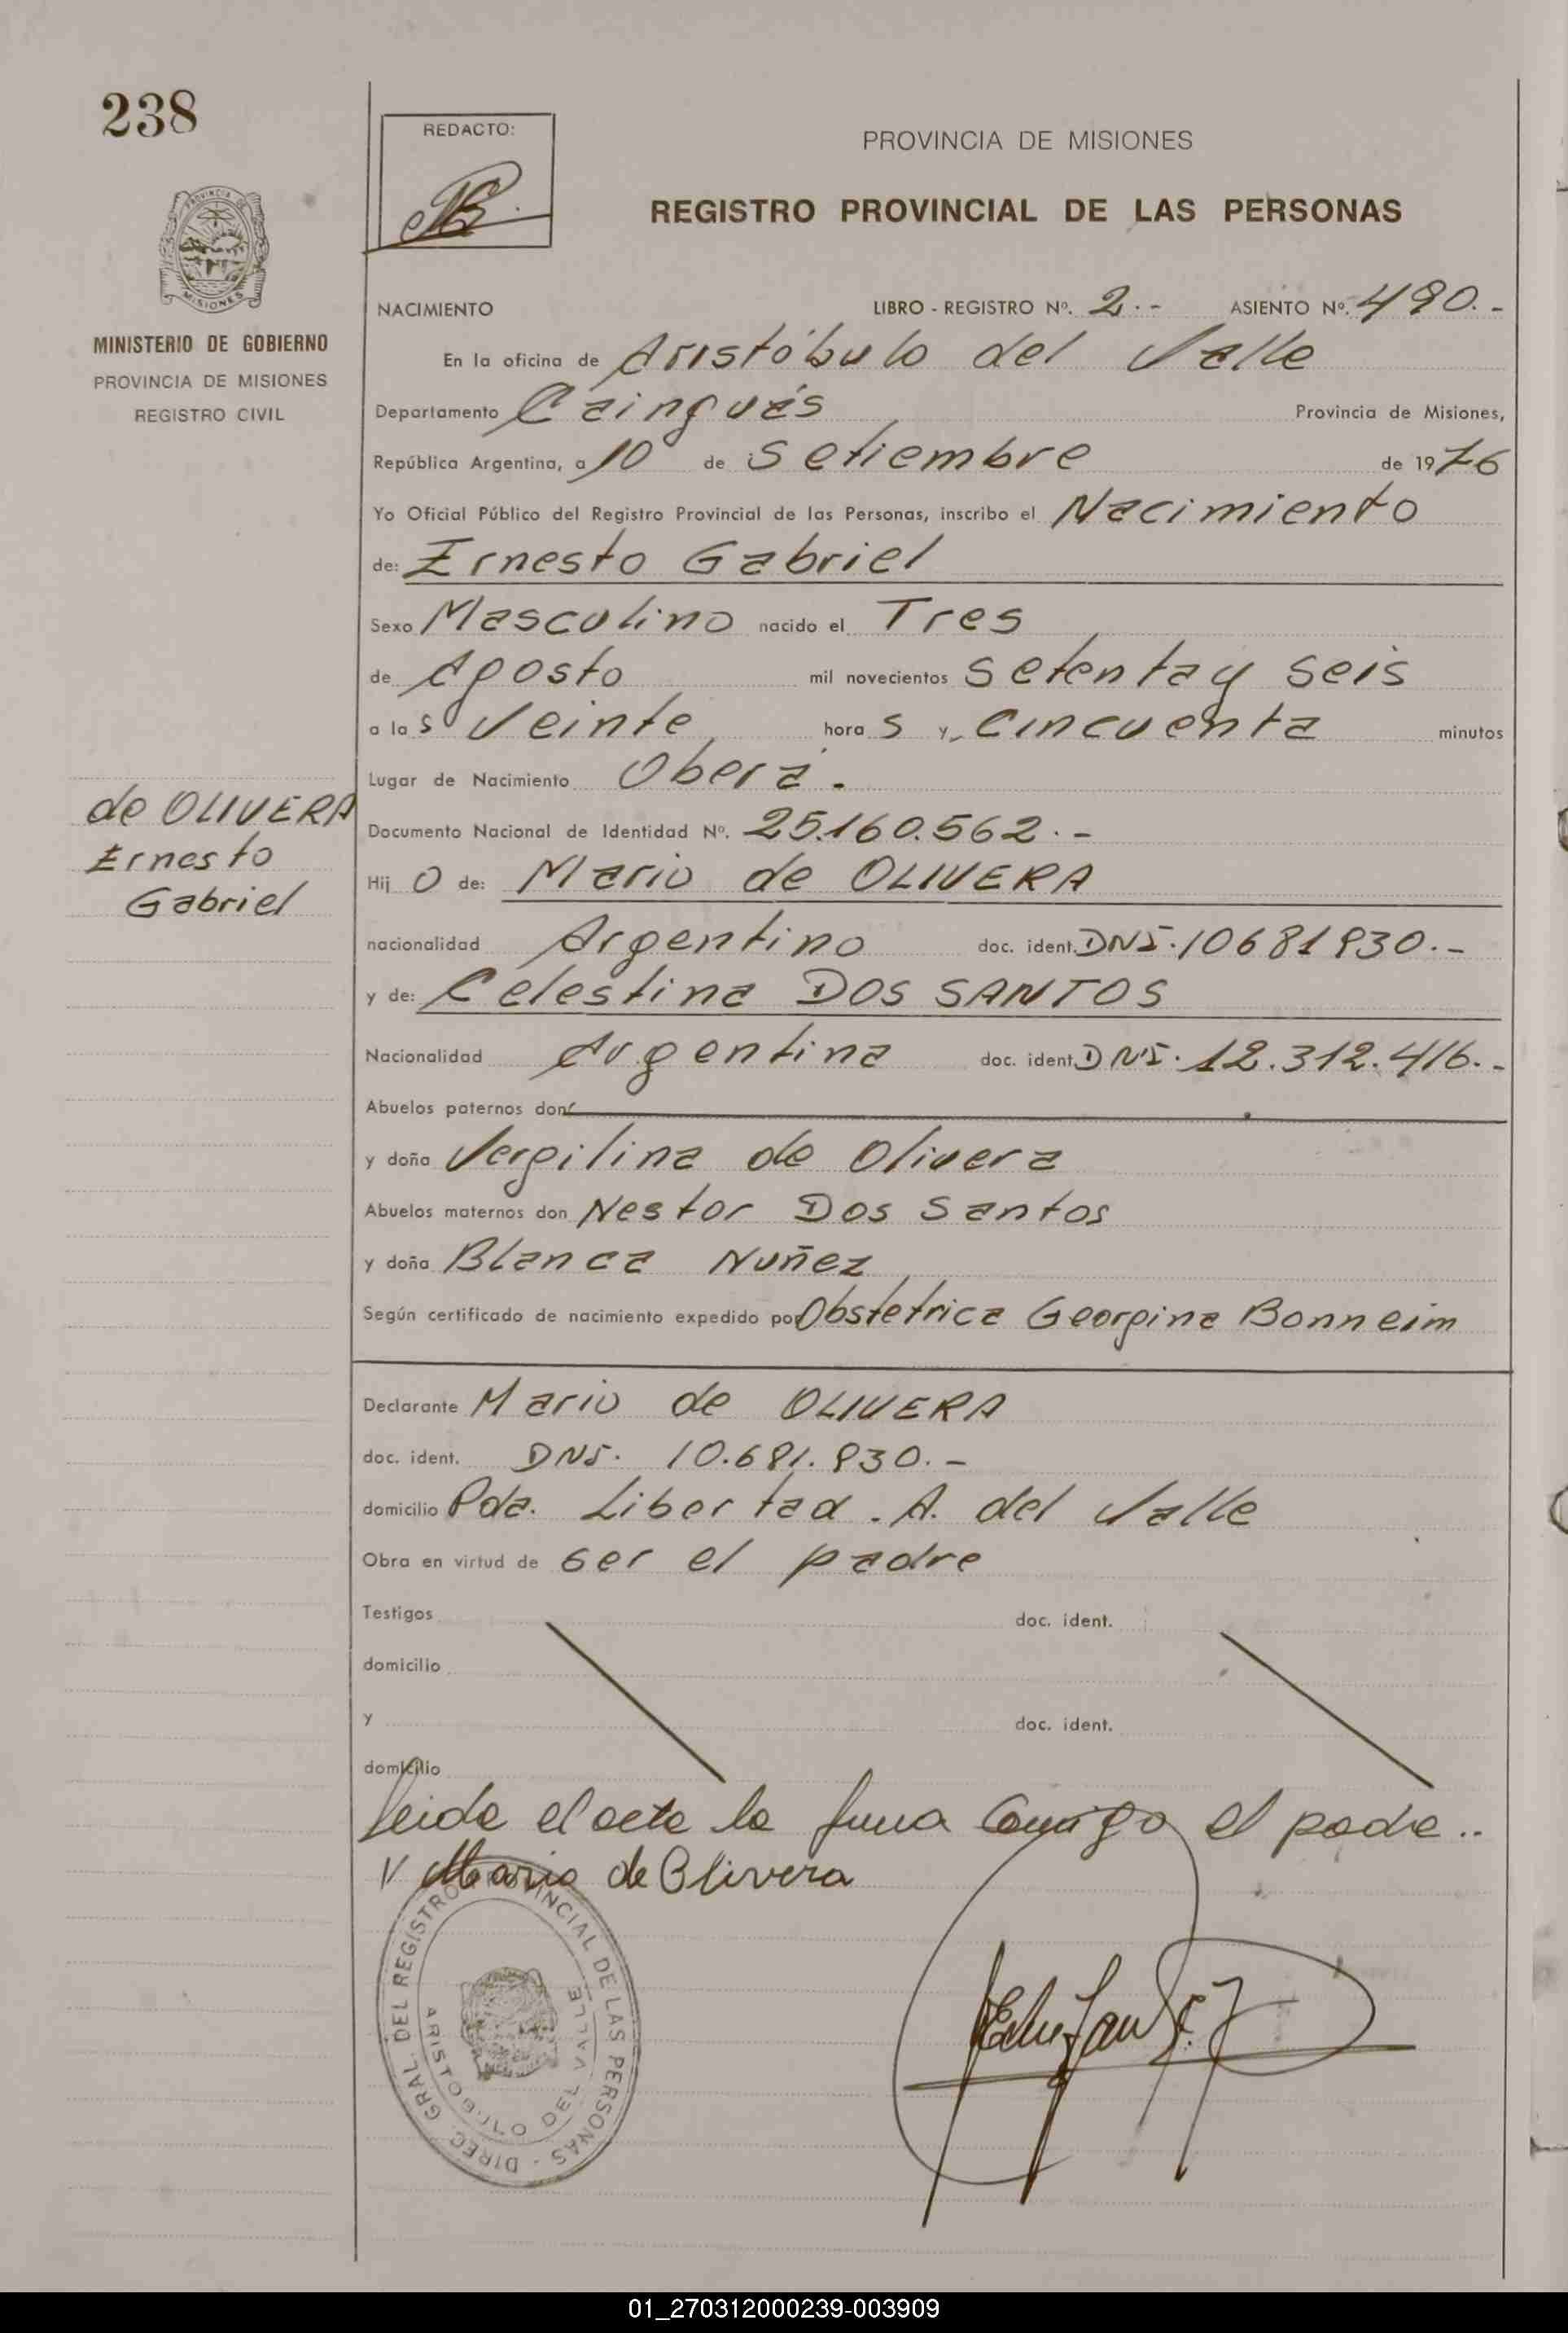 238
REDACTO:
PROVINCIA DE MISIONES
REGISTRO PROVINCIAL DE LAS PERSONAS
PROVINCIA DE MISIONES
MINISTERIO DE GOBIERNO
PROVINCIA DE MISIONES
REGISTRO CIVIL
NACIMIENTO LIBRO - REGISTRO Nº. 2.- ASIENTO Nº. 490.-
En la oficina de Aristóbulo del Valle
Departamento Cainguás Provincia de Misiones,
República Argentina, a 10 de Setiembre de 1976
Yo Oficial Público del Registro Provincial de las Personas, inscribo el Nacimiento
de: Ernesto Gabriel
Sexo Masculino nacido el Tres
de Agosto mil novecientos setenta y seis
a las Veinte horas y, Cincuenta minutos
Lugar de Nacimiento Oberá.
de OLIVERA
Ernesto
Gabriel
Documento Nacional de Identidad Nº. 25.160.562.-
Hijo de: Mario de OLIVERA
nacionalidad Argentino doc. ident. DNI. 10681930.-
y de: Celestina DOS SANTOS
Nacionalidad Argentina doc. ident. DNI. 12.312.416.-
Abuelos paternos don
y doña Vergilina de Olivera
Abuelos maternos don Nestor Dos Santos
y doña Blanca Nuñez
Según certificado de nacimiento expedido por Obstetrica Georgina Bonneim
Declarante Mario de OLIVERA
doc. ident. DNI. 10.681.930.-
domicilio Pda. Libertad. A. del Valle
Obra en virtud de ser el padre
Testigos doc. ident.
domicilio
y doc. ident.
domicilio
Leida el acta la firma Conmigo el padre..
Mario de Olivera
DIREC. GRAL. DEL REGISTRO PROVINCIAL DE LAS PERSONAS -
ARISTOBULO DEL VALLE
01_270312000239-003909